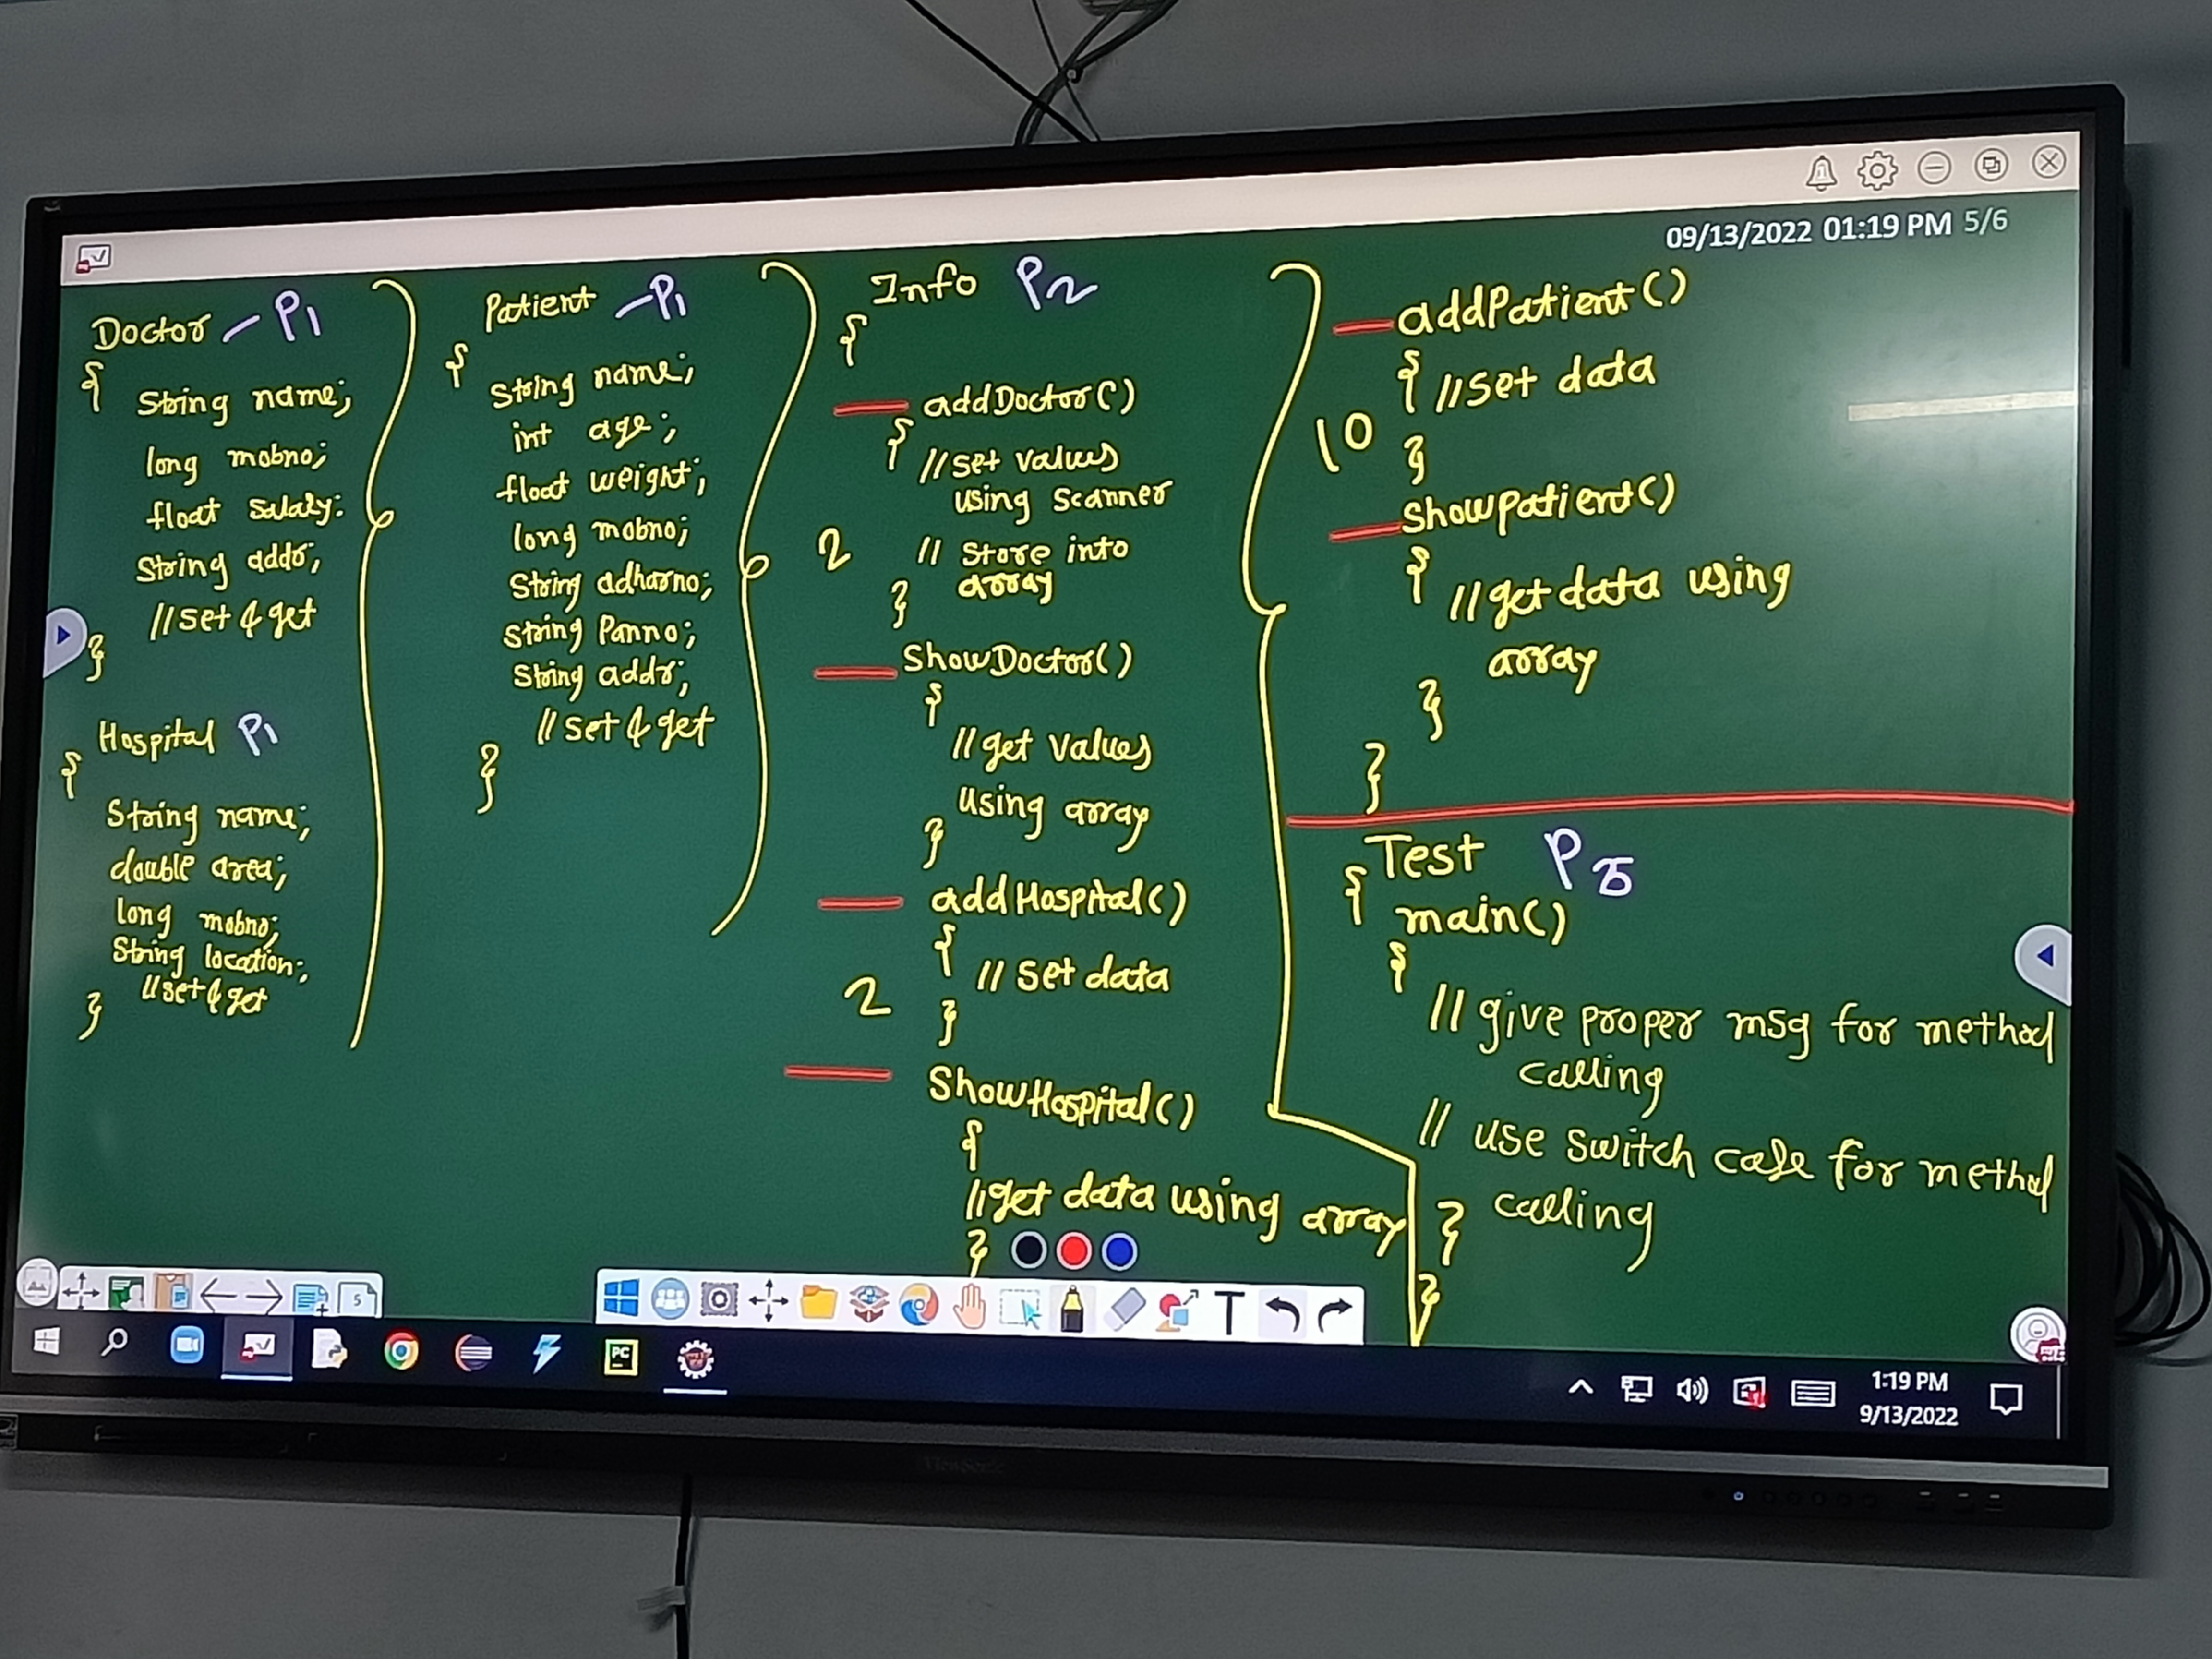 09/13/2022 01:19 PM 5/6
Doctor - P1
{
String name;
long mobno;
float salary:
String addr;
//set & get
}
Hospital P1
{
String name;
double area;
long mobno;
String location;
//set & get
}
Patient - P1
{
String name;
int age;
float weight;
long mobno;
String adharno;
String Panno;
String addr;
//set & get
}
Info P2
{
addDoctor()
{
//set values
using Scanner
2 // Store into
array
}
ShowDoctor()
{
//get values
using array
}
addHospital()
{
// Set data
2
}
ShowHospital()
{
//get data using array
}
addPatient()
{ //Set data
10
}
ShowPatient()
{
//get data using
array
}
}
Test P3
{
main()
{
// give proper msg for method
calling
// use switch case for method
calling
}
}
5
T
PC
1:19 PM
9/13/2022
ViewSonic